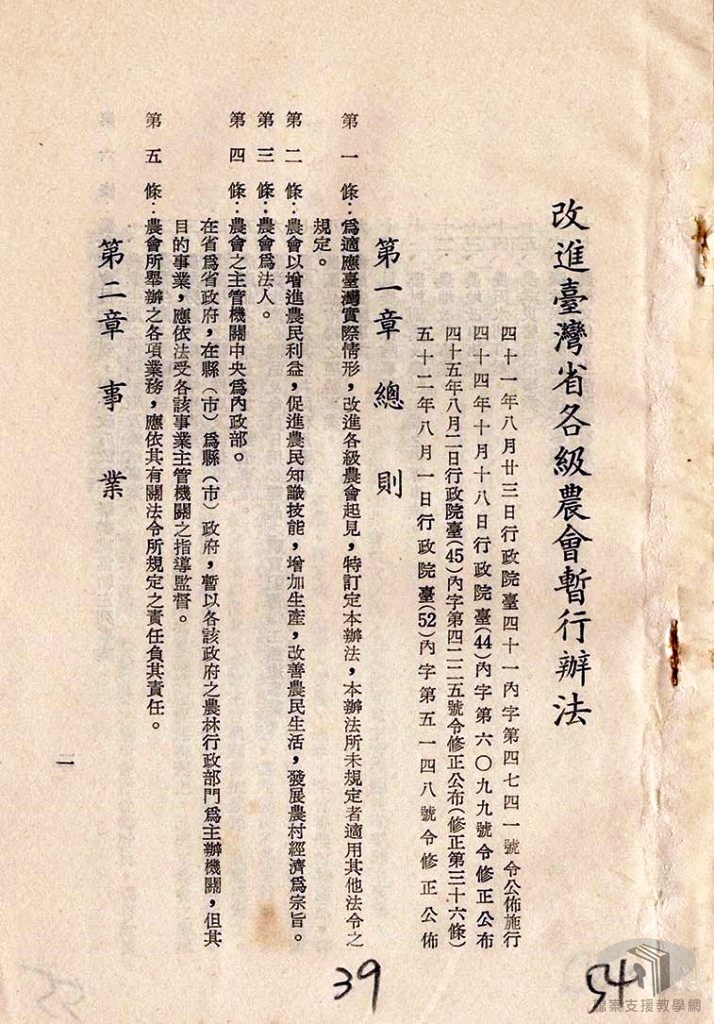 改進臺灣省各級農會暫行辦法
四十一年八月廿三日行政院臺四十一內字第四七四一號令公佈施行
四十四年十月十八日行政院臺(44)內字第六〇九九號令修正公布
四十五年八月二日行政院臺(45)內字第四二二五號令修正公布(修正第三十六條)
五十二年八月一日行政院臺(52)內字第五一四八號令修正公佈
第一章 總則
第一條：為適應臺灣實際情形，改進各級農會起見，特訂定本辦法，本辦法所未規定者適用其他法令之
規定。
第二條：農會以增進農民利益，促進農民知識技能，增加生產，改善農民生活，發展農村經濟為宗旨。
第三條：農會為法人。
第四條：農會之主管機關中央為內政部。
在省為省政府，在縣(市)為縣(市)政府，暫以各該政府之農林行政部門為主辦機關，但其
目的事業，應依法受各該事業主管機關之指導監督。
第五條：農會所舉辦之各項業務，應依其有關法令所規定之責任負其責任。
第二章 事業
一
39
54
檔案支援教學網